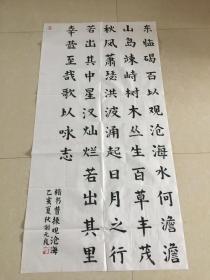 东临碣石以观沧海水何澹澹
山岛竦峙树木丛生百草丰茂
秋风萧瑟洪波涌起日月之行
若出其中星汉灿烂若出其里
幸甚至哉歌以咏志
楷书曹操观沧海
乙亥夏秋刘元